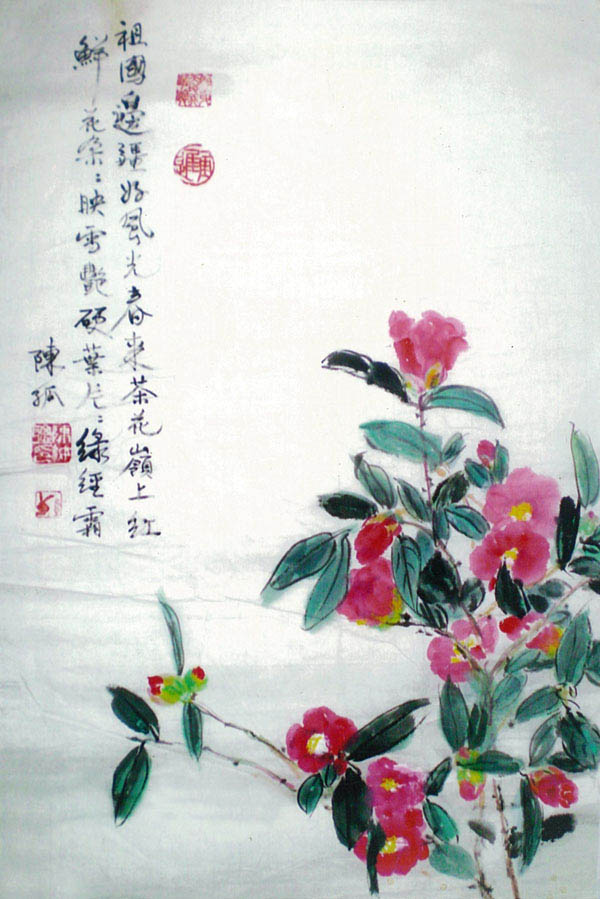 祖國邊疆好風光春來茶花嶺上紅
鮮花朶〻映雪艷硬葉片〻綠經霜
陳孤